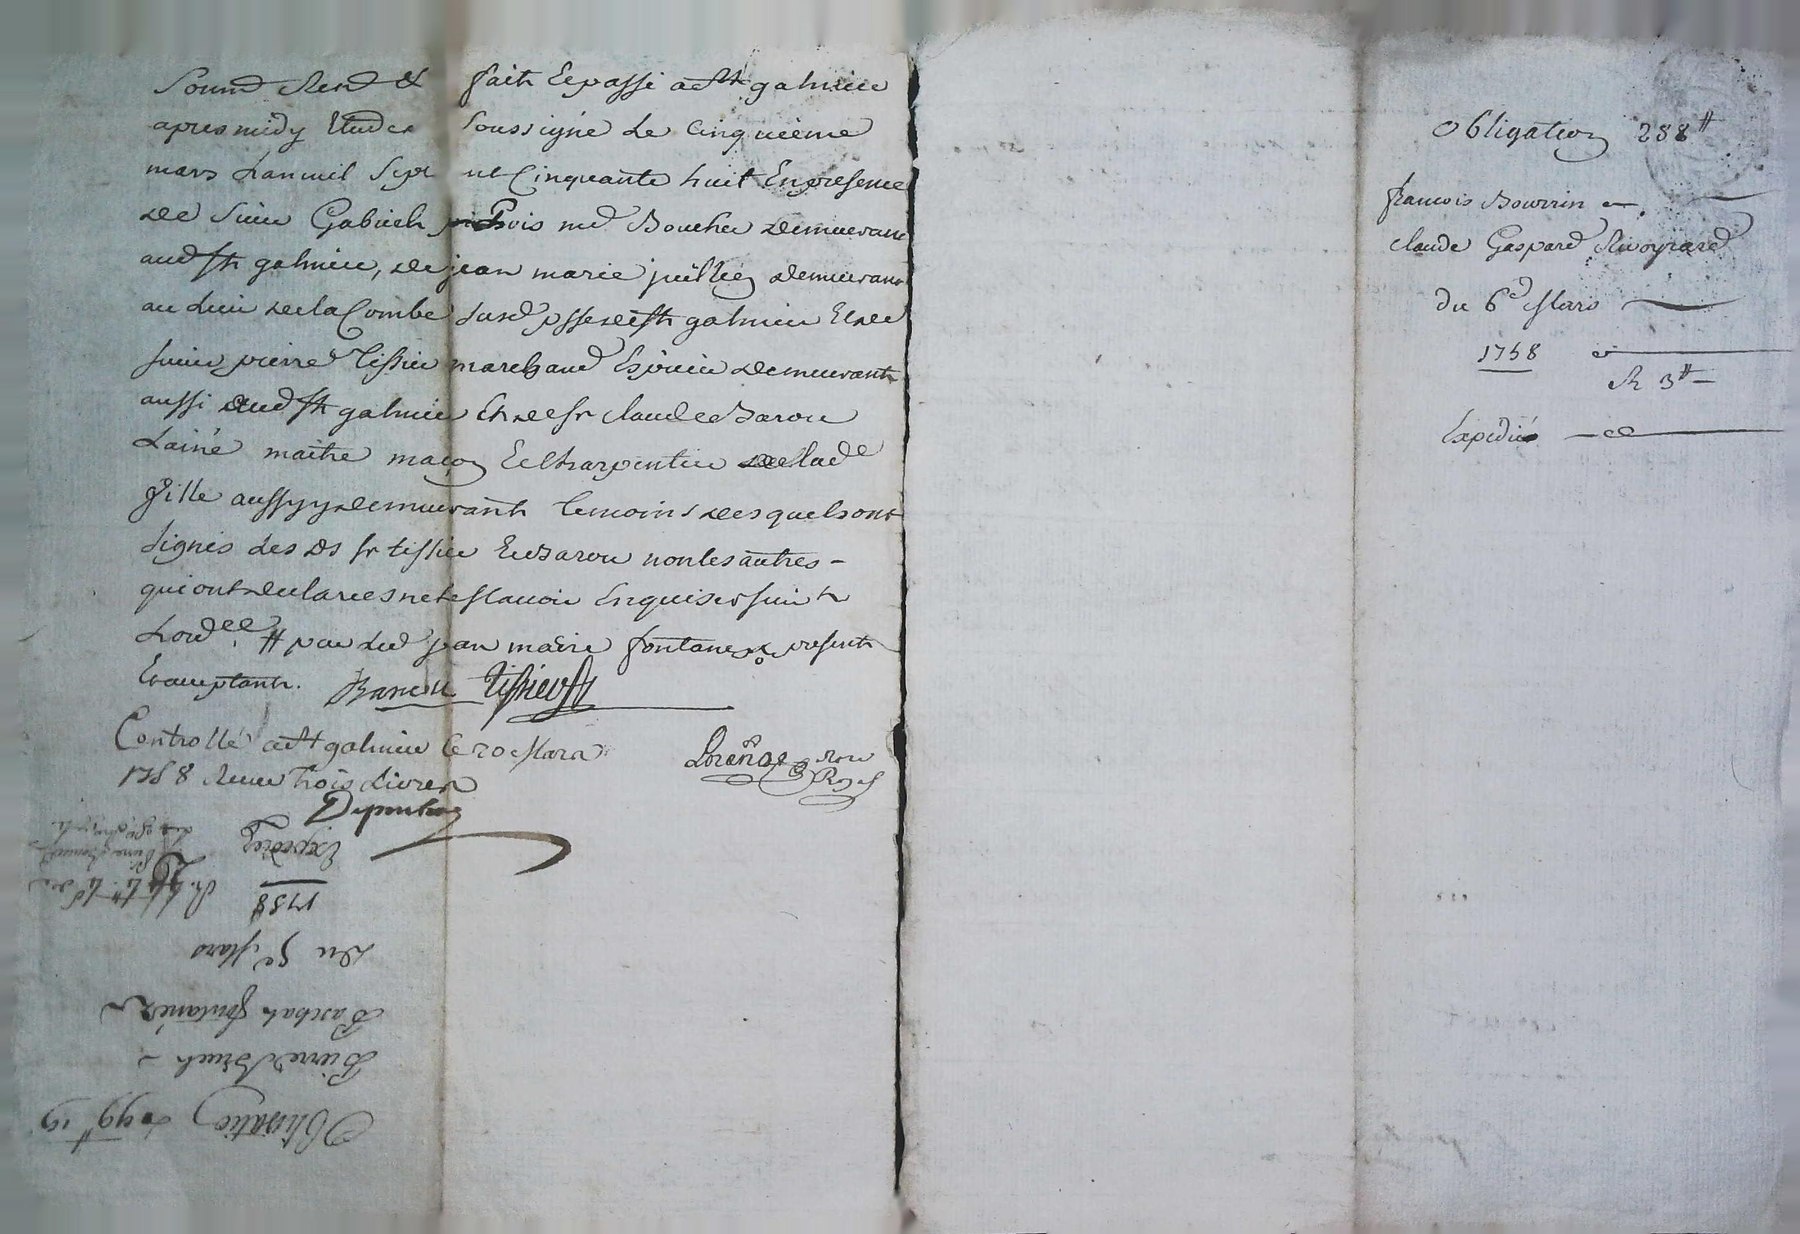 Soumd Rend & fait Et passé a St galmier
apres midy Etude soussigné Le Cinquieme
mars Lan mil Sept nt Cinquante huit En presence
de Sieur Gabriel Bois md Boucher demeurant
aud St galmier, de jean marie juillien demeurant
au Lieu de la Combe susd psse de St galmier Et de
sieur pierre Tissier marchand Epicier demeurant
aussi aud St galmier Et de sr claude Barou
Lainé maitre maçon Et Charpentier de lad
Ville aussy y demeurant temoins desquels ont
signés Les ds sr tissier Et Barou non les autres -
qui ont declarés ne le scavoir Enquis et suivt
Lord ee. # par Led jean marie fontanex present
Et acceptant. Barou Tissier
Controllé a St galmier le 20 Mars
1758 Recu trois Livres
Expedié
1758
Du 5e Mars
Pierre
Obligation 99# 19
Obligation 288#
francois Bourrin a
claude Gaspard Rivoyrard
du 6e Mars
1758
R 3#-
Expedié